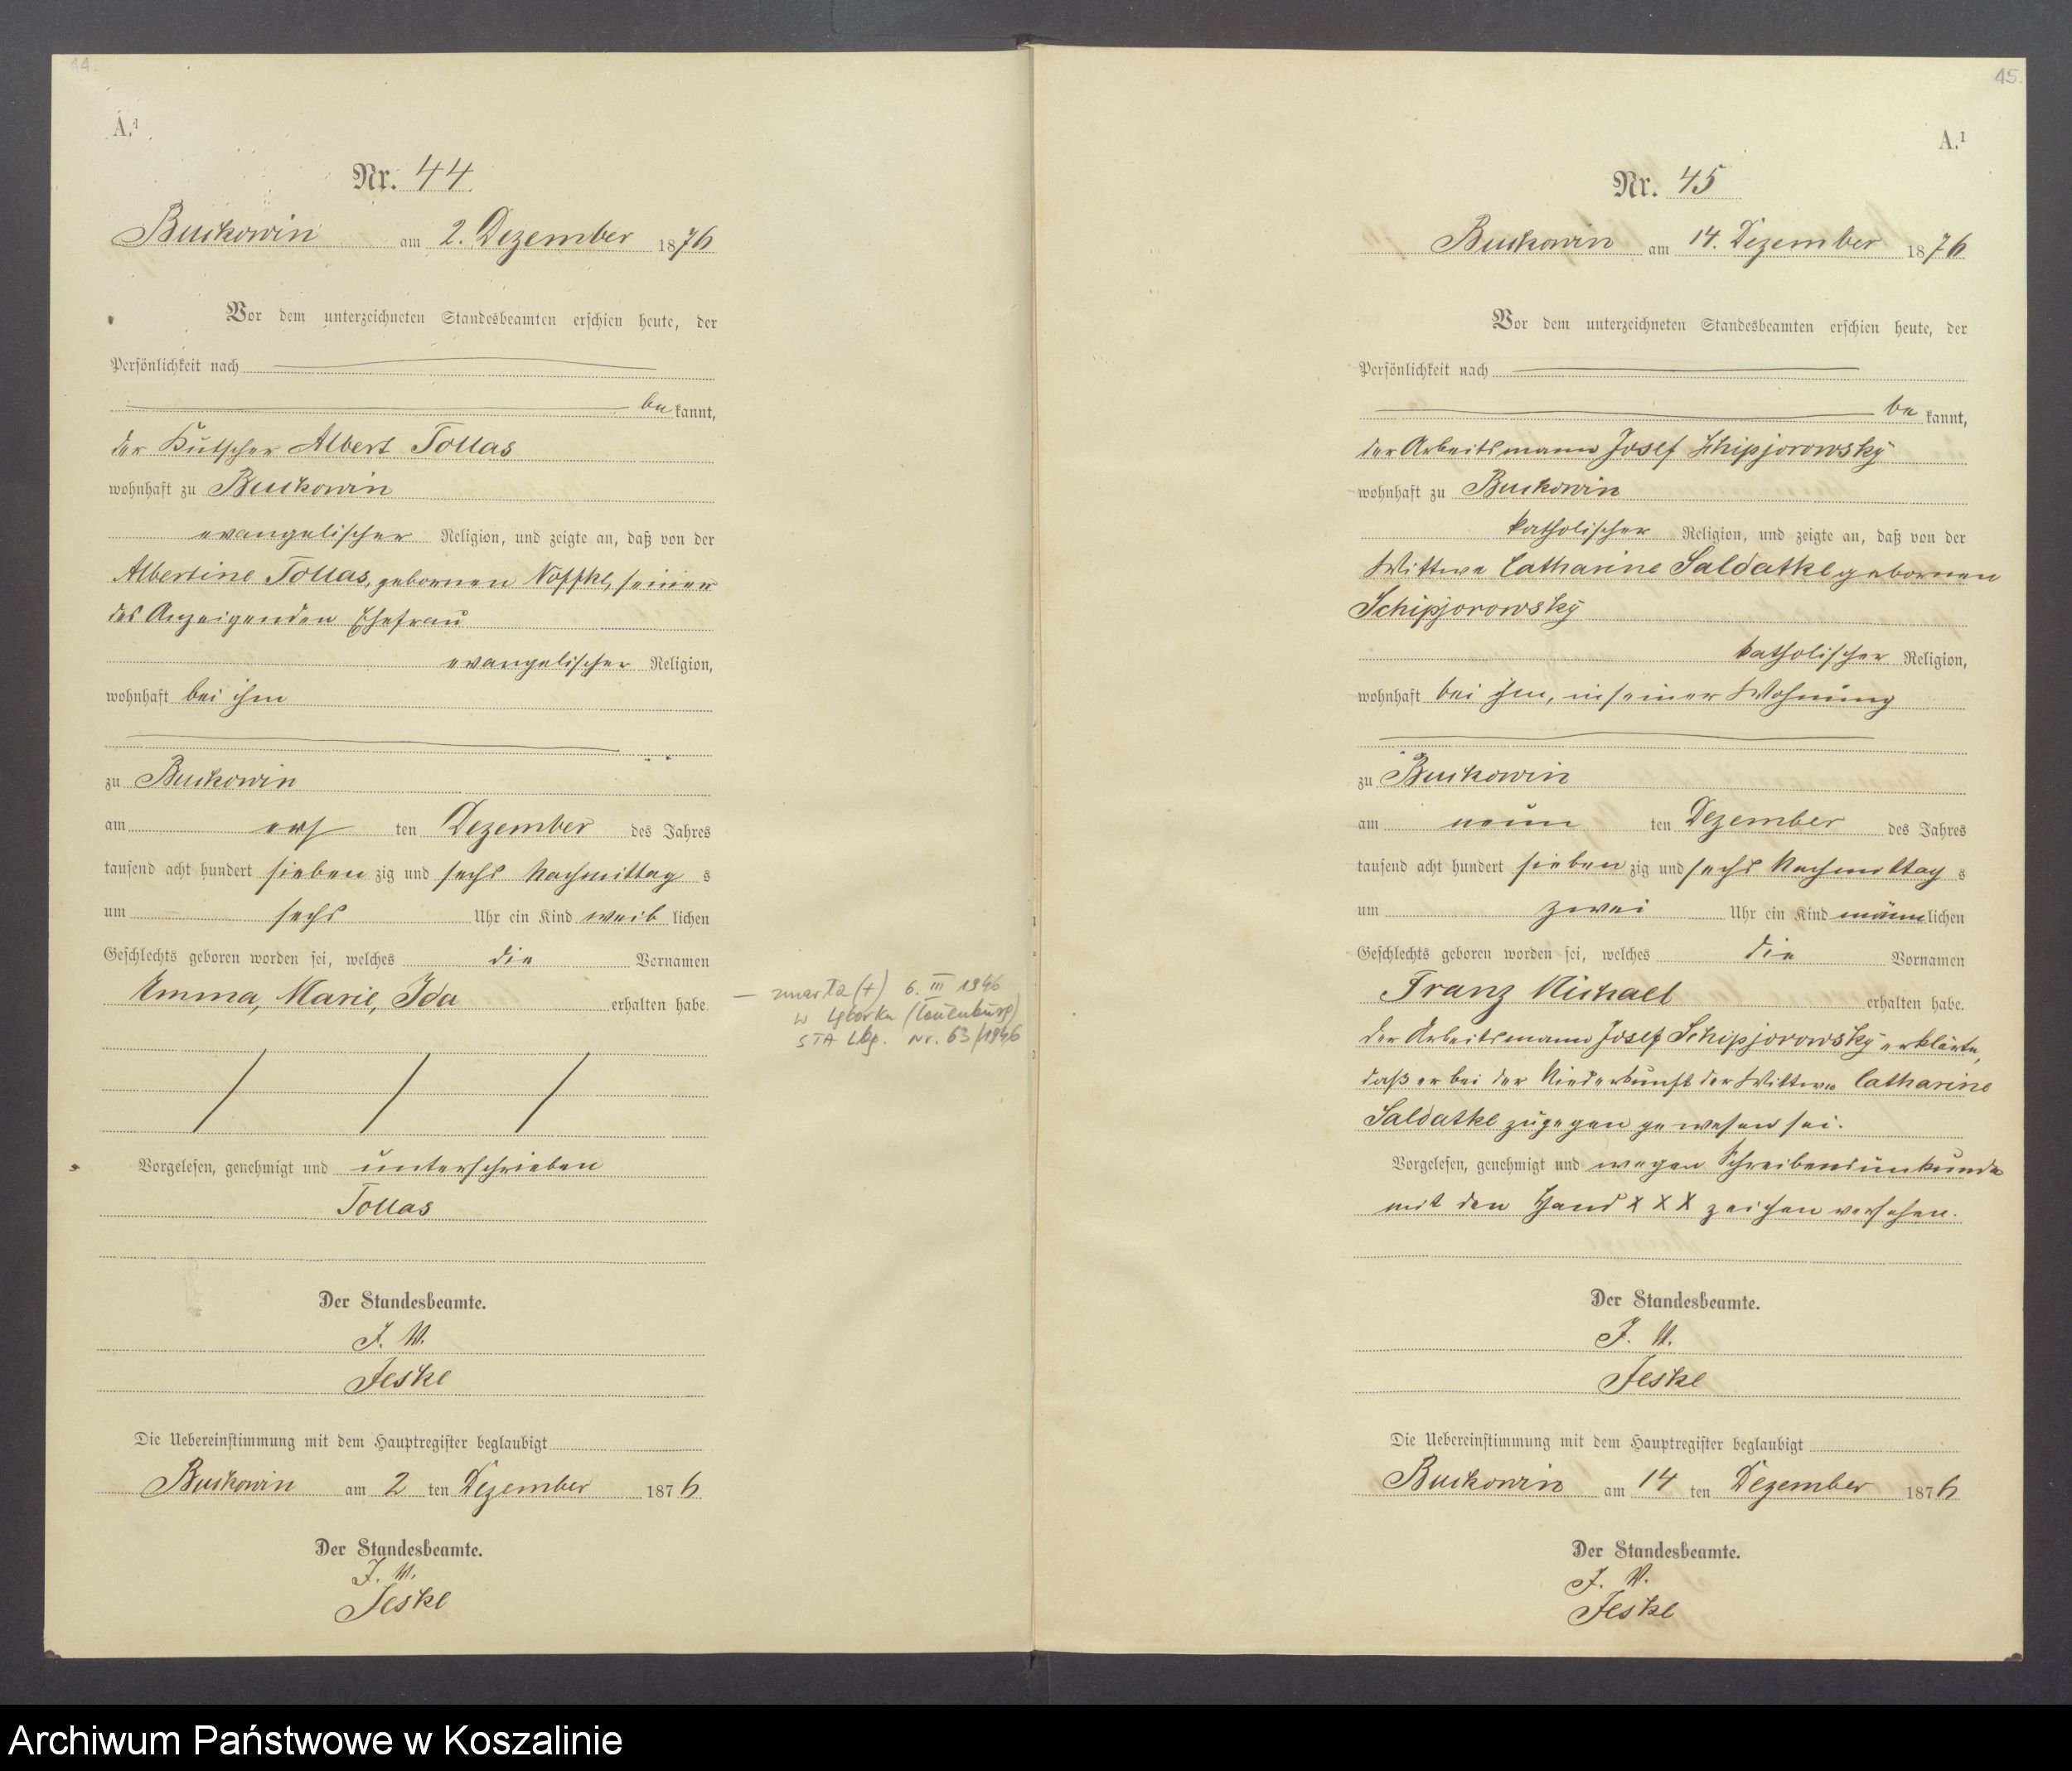 44.
A.¹
Nr. 44
Buckowin am 2. Dezember 1876
Vor dem unterzeichneten Standesbeamten erschien heute, der
Persönlichkeit nach
be kannt,
der Kutscher Albert Tollas
wohnhaft zu Buckowin
evangelischer Religion, und zeigte an, daß von der
Albertine Tollas, gebornen Noffke, seiner
des Anzeigenden Ehefrau
evangelischer Religion,
wohnhaft bei ihm
zu Buckowin
am ers ten Dezember des Jahres
tausend acht hundert sieben zig und sechs Nachmittag s
um sechs Uhr ein Kind weib lichen
Geschlechts geboren worden sei, welches die Vornamen
Emma, Marie, Ida erhalten habe.
— zmarła (+) 6. III 1946
w Lęborku (Lauenburg)
STA Lbg. Nr. 63/1946
Vorgelesen, genehmigt und unterschrieben
Tollas
Der Standesbeamte.
J. V.
Jeske
Die Uebereinstimmung mit dem Hauptregister beglaubigt
Buckowin am 2 ten Dezember 1876
Der Standesbeamte.
J. V.
Jeske
45.
A.¹
Nr. 45
Buckowin am 14. Dezember 1876
Vor dem unterzeichneten Standesbeamten erschien heute, der
Persönlichkeit nach
be kannt,
der Arbeitsmann Josef Schipjorowsky
wohnhaft zu Buckowin
katholischer Religion, und zeigte an, daß von der
Wittwe Catharine Saldatke gebornen
Schipjorowsky
katholischer Religion,
wohnhaft bei ihm, in seiner Wohnung
zu Buckowin
am neun ten Dezember des Jahres
tausend acht hundert sieben zig und sechs Nachmittag s
um zwei Uhr ein Kind männ lichen
Geschlechts geboren worden sei, welches die Vornamen
Franz Michael erhalten habe.
der Arbeitsmann Josef Schipjorowsky erklärte,
daß er bei der Niederkunft der Wittwe Catharine
Saldatke zugegen gewesen sei.
Vorgelesen, genehmigt und wegen Schreibensunkunde
mit den Hand x x x zeichen versehen.
Der Standesbeamte.
J. V.
Jeske
Die Uebereinstimmung mit dem Hauptregister beglaubigt
Buckowin am 14 ten Dezember 1876
Der Standesbeamte.
J. V.
Jeske
Archiwum Państwowe w Koszalinie